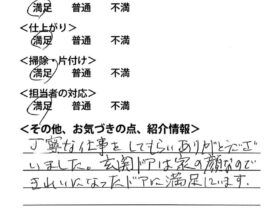 満足 普通 不満
<仕上がり>
満足 普通 不満
<掃除・片付け>
満足 普通 不満
<担当者の対応>
満足 普通 不満
<その他、お気づきの点、紹介情報>
丁寧な仕事をしてもらいありがとうござ
いました。玄関ドアは家の顔なので
きれいになったドアに満足しています。